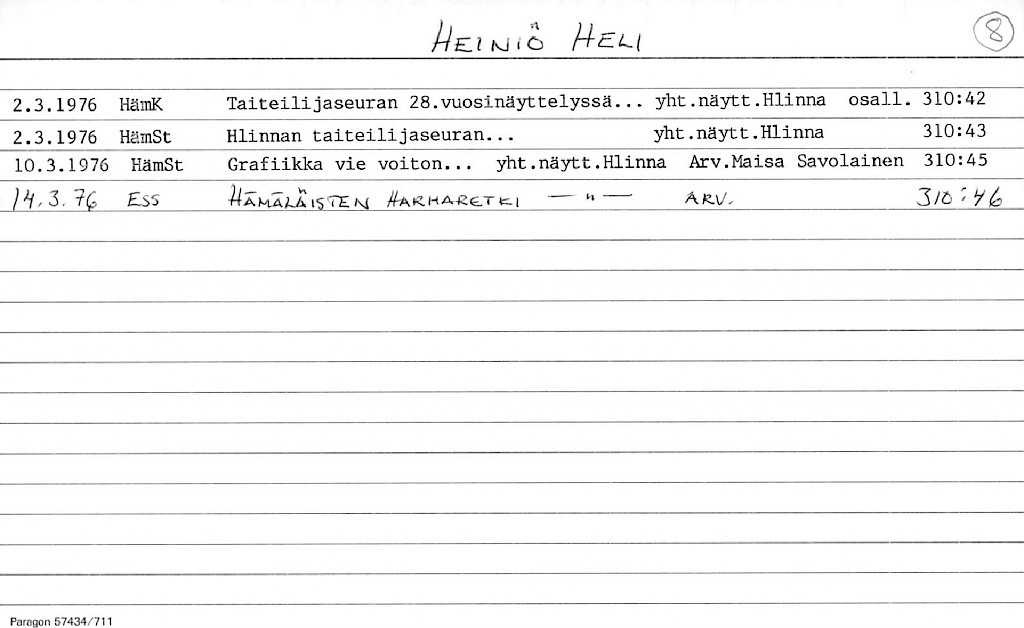 HEINIÖ HELI 8
2.3.1976 HämK Taiteilijaseuran 28.vuosinäyttelyssä... yht.näytt.Hlinna osall. 310:42
2.3.1976 HämSt Hlinnan taiteilijaseuran... yht.näytt.Hlinna 310:43
10.3.1976 HämSt Grafiikka vie voiton... yht.näytt.Hlinna Arv.Maisa Savolainen 310:45
14.3.76 ESS HÄMÄLÄISTEN HARHARETKI — " — ARV. 310:46
Paragon 57434/711